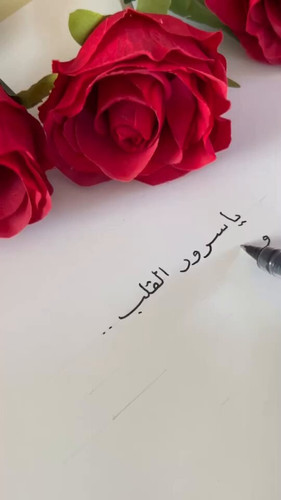 ياسرور القلب ..
و